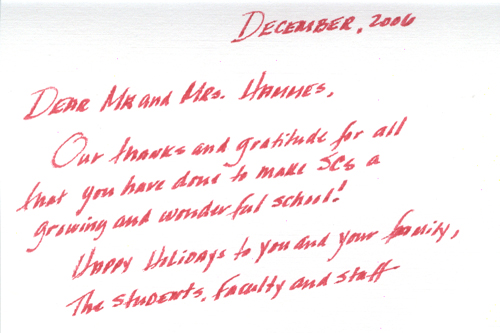 December, 2006
Dear Mr and Mrs. Hammes,
Our thanks and gratitude for all
that you have done to make SCS a
growing and wonderful school!
Happy Holidays to you and your family,
The Students, Faculty and Staff